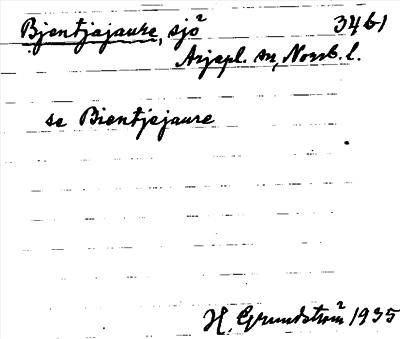 Bjentjajaure, sjö 3461
Arjepl. sn, Norrb. l.
se Bientjejaure
H. Grundström 1935